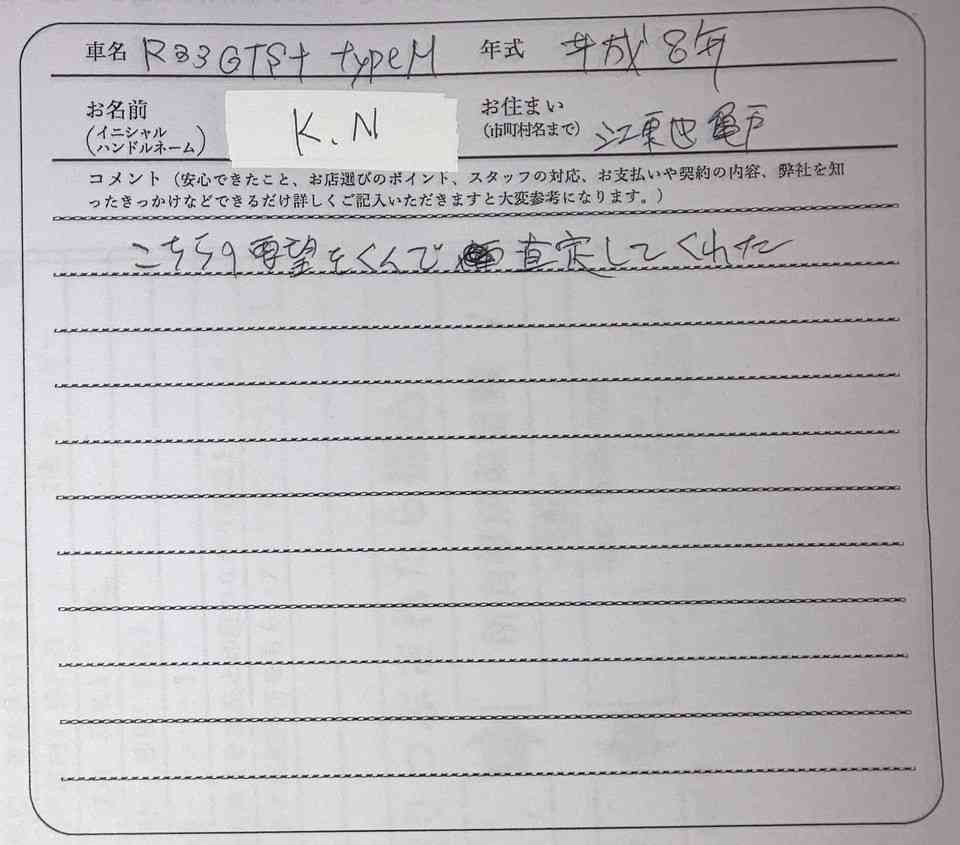 車名 R33GTSt typeM 年式 平成8年
お名前 (イニシャル ハンドルネーム) K.N お住まい (市町村名まで) 江東区亀戸
コメント(安心できたこと、お店選びのポイント、スタッフの対応、お支払いや契約の内容、弊社を知
ったきっかけなどできるだけ詳しくご記入いただきますと大変参考になります。)
こちらの要望をくんで 査定してくれた